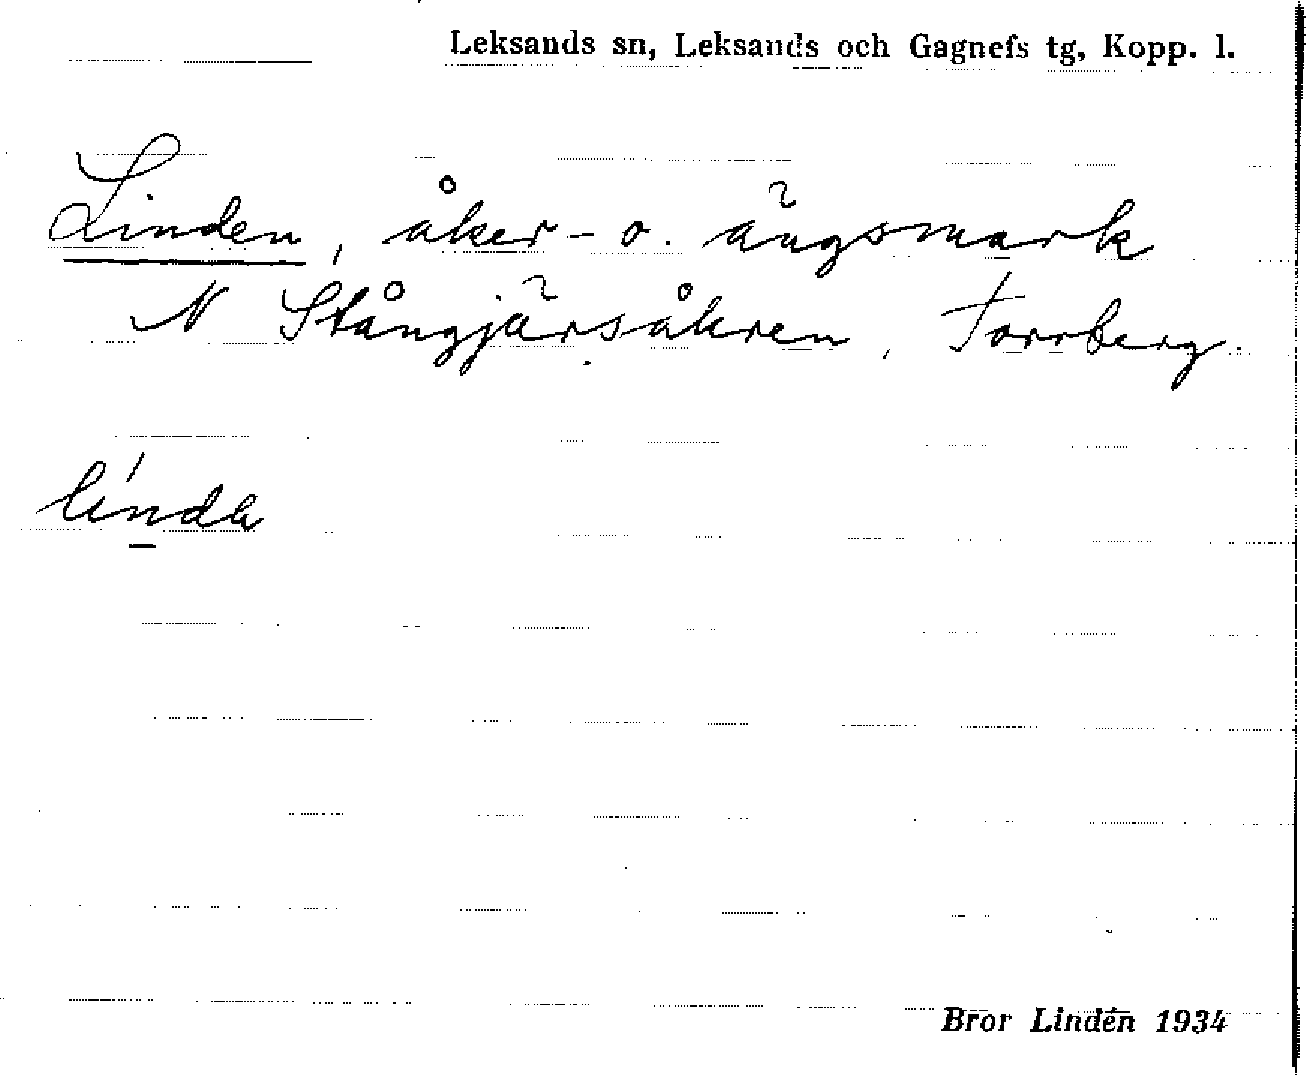 Leksands sn, Leksands och Gagnefs tg, Kopp. l.
Linden, åker- o. ängsmark
N Stångjärsåkren, Torrberg.
Bror Lindén 1934